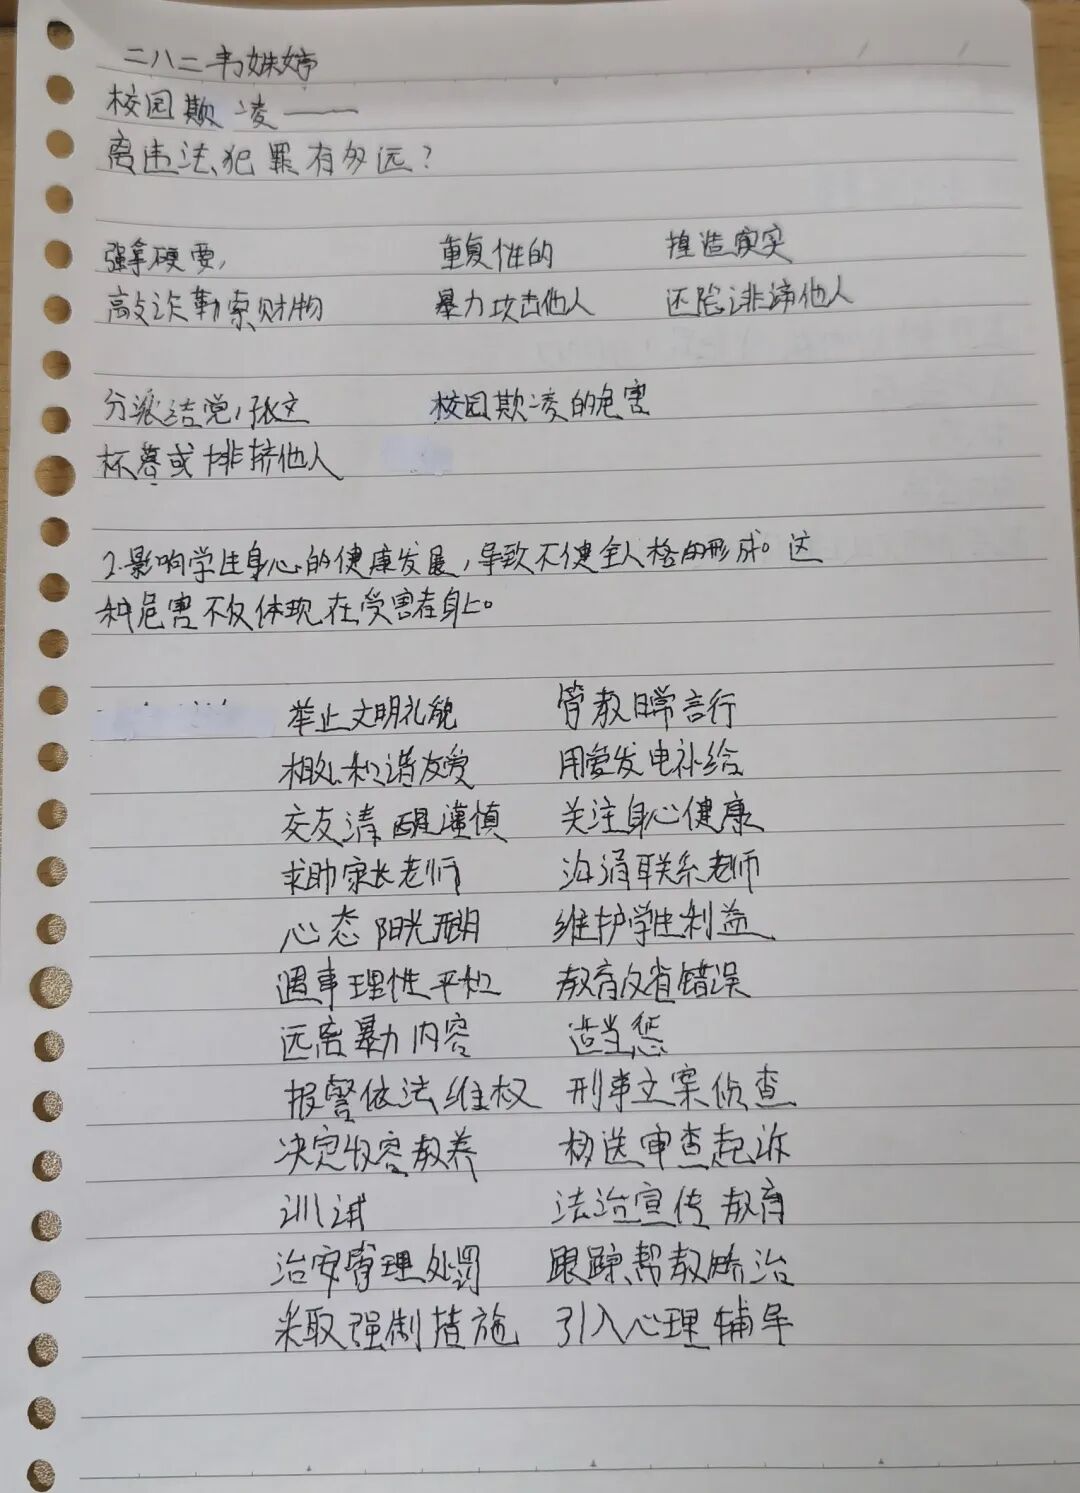 二八二韦姝婷
校园欺凌——
离违法犯罪有多远?
强拿硬要, 重复性的 捏造事实
敲诈勒索财物 暴力攻击他人 诬陷诽谤他人
分派结党, 孤立 校园欺凌的危害
或排挤他人
2.影响学生身心的健康发展,导致不健全人格的形成。这
种危害不仅体现在受害者身上。
举止文明礼貌 管教日常言行
相处和谐友爱 用爱发电补给
交友清醒谨慎 关注身心健康
求助家长老师 沟通联系老师
心态阳光开朗 维护学生利益
遇事理性平和 教育反省错误
远离暴力内容 适当惩
报警依法维权 刑事立案侦查
决定收容教养 移送审查起诉
训诫 法治宣传教育
治安管理处罚 跟踪帮教矫治
采取强制措施 引入心理辅导